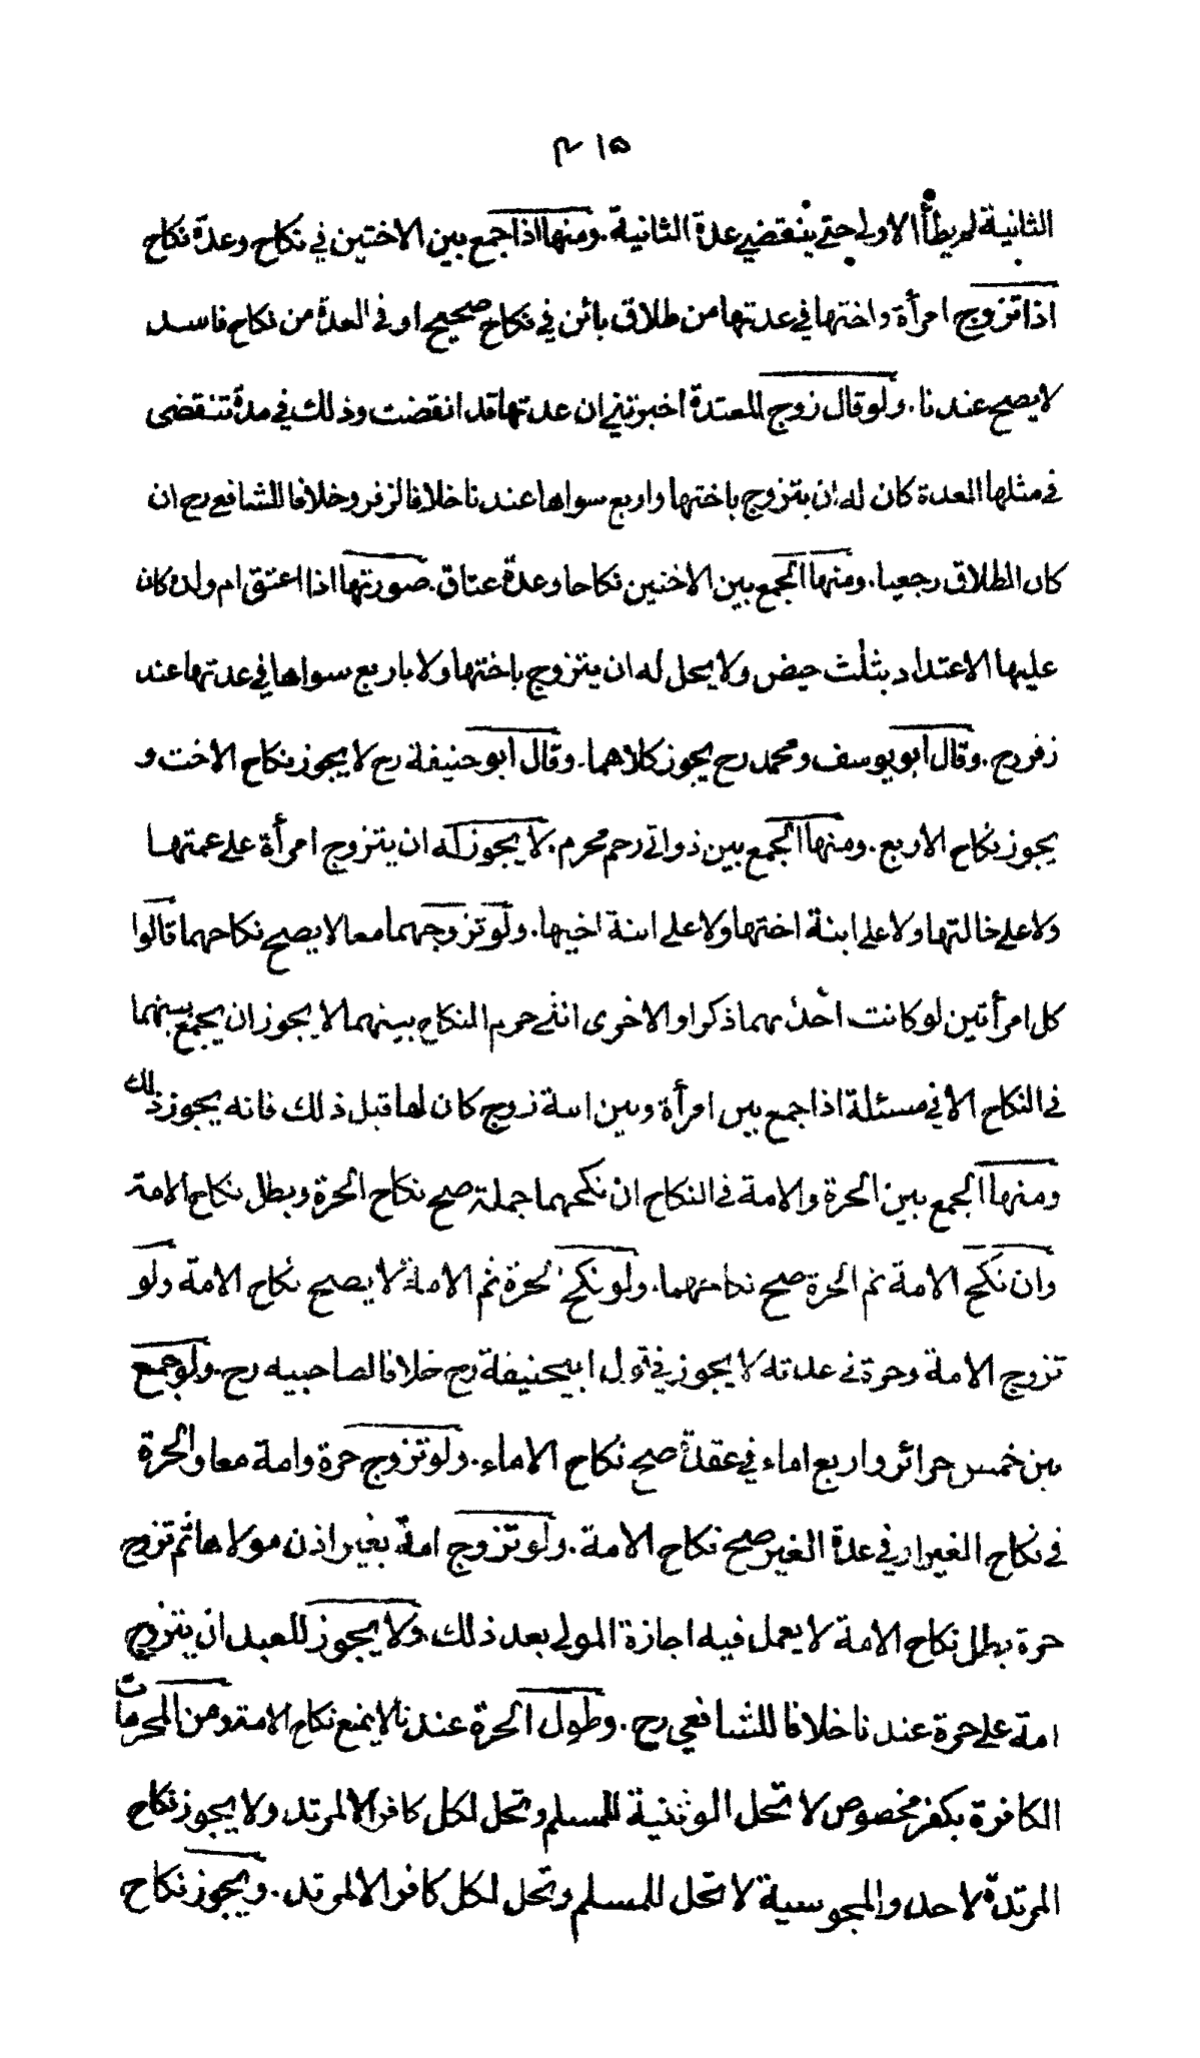 ٤١٥
الثانية لم يطأ الاولى حتى ينقضي عدة الثانية. ومنها اذا جمع بين الاختين في نكاح وعدة نكاح
اذا تزوج امرأة واختها في عدتها من طلاق بائن في نكاح صحيح او في العدة من نكاح فاسد
لا يصح عندنا. ولو قال زوج المعتدة اخبرتني ان عدتها قد انقضت وذلك في مدة تنقضى
في مثلها العدة كان له ان يتزوج باختها واربع سواها عندنا خلافا لزفر وخلافا للشافعي رح ان
كان الطلاق رجعيا. ومنها الجمع بين الاختين نكاحا وعدة عتاق. صورتها اذا اعتق ام ولده كان
عليها الاعتداد بثلث حيض ولا يحل له ان يتزوج باختها ولا باربع سواها في عدتها عند
زفر رح. وقال ابو يوسف ومحمد رح يجوز كلاهما. وقال ابو حنيفة رح لا يجوز نكاح الاخت و
يجوز نكاح الاربع. ومنها الجمع بين ذواتي رحم محرم. لا يجوز له ان يتزوج امرأة على عمتها
ولا على خالتها ولا على ابنة اختها ولا على ابنة اخيها. ولو تزوجهما معا لا يصح نكاحهما قالوا
كل امرأتين لو كانت احدٰىهما ذكرا والاخرى انثى حرم النكاح بينهما لا يجوز ان يجمع بينهما
في النكاح الا في مسئلة اذا جمع بين امرأة وبين ابنة زوج كان لها قبل ذلك فانه يجوز ذلك
ومنها الجمع بين الحرة والامة في النكاح ان نكحهما جملة صح نكاح الحرة وبطل نكاح الامة
وان نكح الامة ثم الحرة صح نكاحهما. ولو نكح الحرة ثم الامة لا يصح نكاح الامة ولو
تزوج الامة وحرة في عدته لا يجوز في قول ابيحنيفة رح خلافا لصاحبيه رح. ولو جمع
بين خمس حرائر واربع اماء في عقدة صح نكاح الاماء. ولو تزوج حرة وامة معا والحرة
في نكاح الغير او في عدة الغير صح نكاح الامة. ولو تزوج امة بغير اذن مولاها ثم تزوج
حرة بطل نكاح الامة لا يعمل فيه اجازة المولى بعد ذلك ولا يجوز للعبد ان يتزوج
امة على حرة عندنا خلافا للشافعي رح. وطول الحرة عندنا لا يمنع نكاح الامة ومن المحرمات
الكافرة بكفر مخصوص لا تحل الوثنية للمسلم وتحل لكل كافر الا المرتد ولا يجوز نكاح
المرتدة لاحد والمجوسية لا تحل للمسلم وتحل لكل كافر الا المرتد. ويجوز نكاح